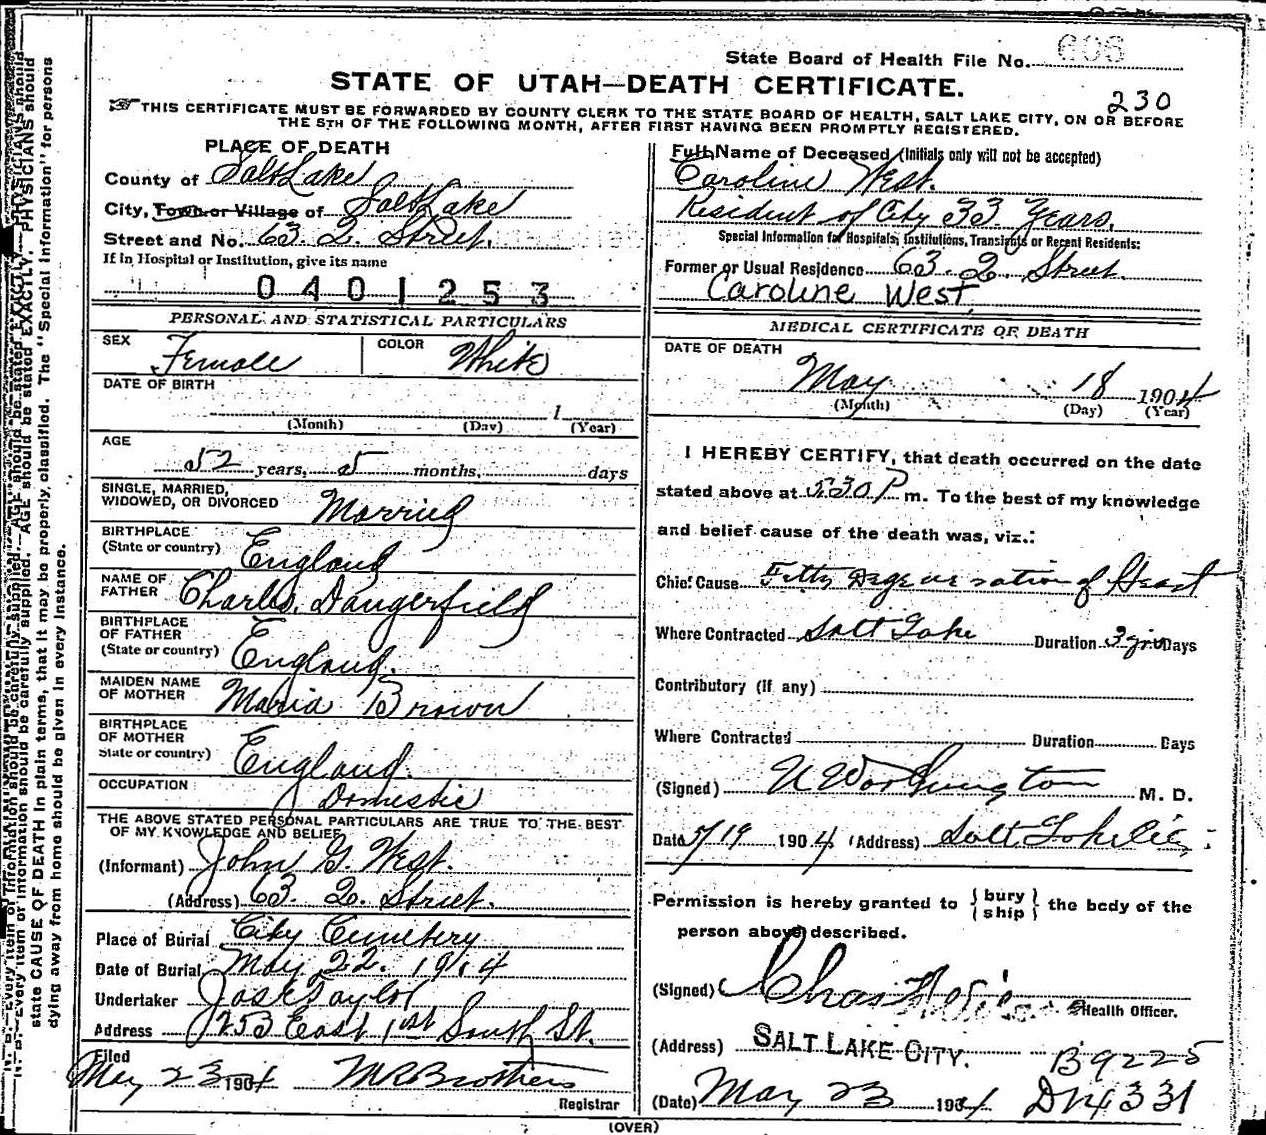 State Board of Health File No. 606
STATE OF UTAH—DEATH CERTIFICATE.
230
THIS CERTIFICATE MUST BE FORWARDED BY COUNTY CLERK TO THE STATE BOARD OF HEALTH, SALT LAKE CITY, ON OR BEFORE
THE 5TH OF THE FOLLOWING MONTH, AFTER FIRST HAVING BEEN PROMPTLY REGISTERED.
PLACE OF DEATH
County of Salt Lake
City, Town or Village of Salt Lake
Street and No. 63. Q. Street.
If in Hospital or Institution, give its name
0401253
PERSONAL AND STATISTICAL PARTICULARS
SEX Female COLOR White
DATE OF BIRTH
1
(Month) (Day) (Year)
AGE
52 years, 5 months, days
SINGLE, MARRIED,
WIDOWED, OR DIVORCED Married
BIRTHPLACE
(State or country) England
NAME OF
FATHER Charles Dangerfield
BIRTHPLACE
OF FATHER
(State or country) England.
MAIDEN NAME
OF MOTHER Maria Brown
BIRTHPLACE
OF MOTHER
State or country) England.
OCCUPATION Domestic
THE ABOVE STATED PERSONAL PARTICULARS ARE TRUE TO THE BEST
OF MY KNOWLEDGE AND BELIEF
(Informant) John G. West.
(Address) 63. Q. Street.
Place of Burial City Cemetery
Date of Burial May 22. 1904
Undertaker Jos E Taylor
Address 253 East 1st South St.
Filed
May 23 1904 Brothers
Registrar
Full Name of Deceased (Initials only will not be accepted)
Caroline West.
Resident of City 33 Years.
Special Information for Hospitals, Institutions, Transients or Recent Residents:
Former or Usual Residence 63. Q. Street.
Caroline West
MEDICAL CERTIFICATE OF DEATH
DATE OF DEATH
May 18 1904
(Month) (Day) (Year)
I HEREBY CERTIFY, that death occurred on the date
stated above at 5.30 P m. To the best of my knowledge
and belief cause of the death was, viz.:
Chief Cause Fatty degeneration of Heart
Where Contracted Salt Lake Duration 3 yrs Days
Contributory (if any)
Where Contracted Duration Days
(Signed) U Worthington M. D.
Date 5/19 1904 (Address) Salt Lake City
Permission is hereby granted to { bury ship } the body of the
person above described.
(Signed) Chas Health Officer.
(Address) SALT LAKE CITY. B9225
(Date) May 23 1904 D144331
(OVER)
N. B.—Every item of information should be carefully supplied. AGE should be stated EXACTLY. PHYSICIANS should
state CAUSE OF DEATH in plain terms, that it may be properly classified. The "Special Information" for persons
dying away from home should be given in every instance.